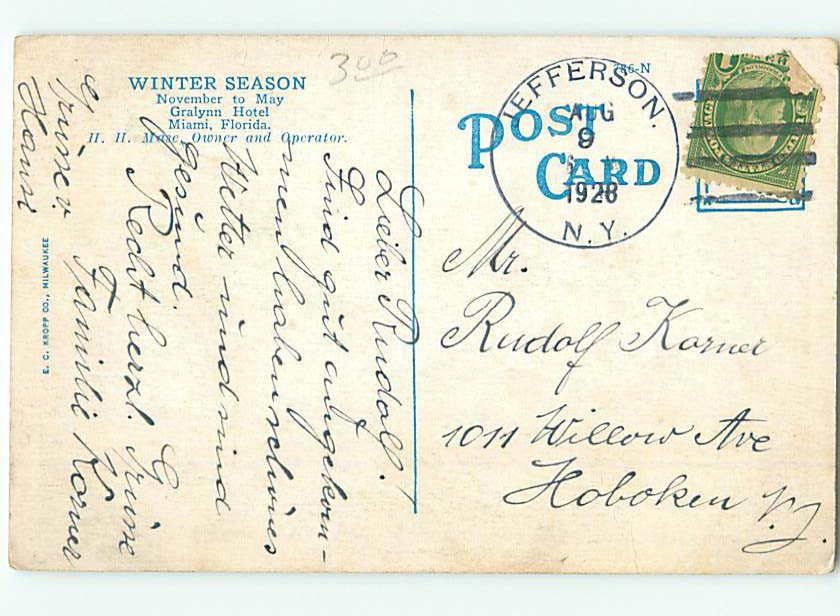 300
WINTER SEASON
November to May
Gralynn Hotel
Miami, Florida.
H. H. Mase, Owner and Operator.
E. C. KROPP CO., MILWAUKEE
786-N
POST
CARD
JEFFERSON.
AUG
9
1928
N.Y.
Mr.
Rudolf Korner
1011 Willow Ave
Hoboken N.J.
Lieber Rudolf!
Sind gut angekom-
men haben schönes
Wetter und sind
gesund.
Recht herzl. Grüsse
Familie Korner
Grüsse v.
Hansi